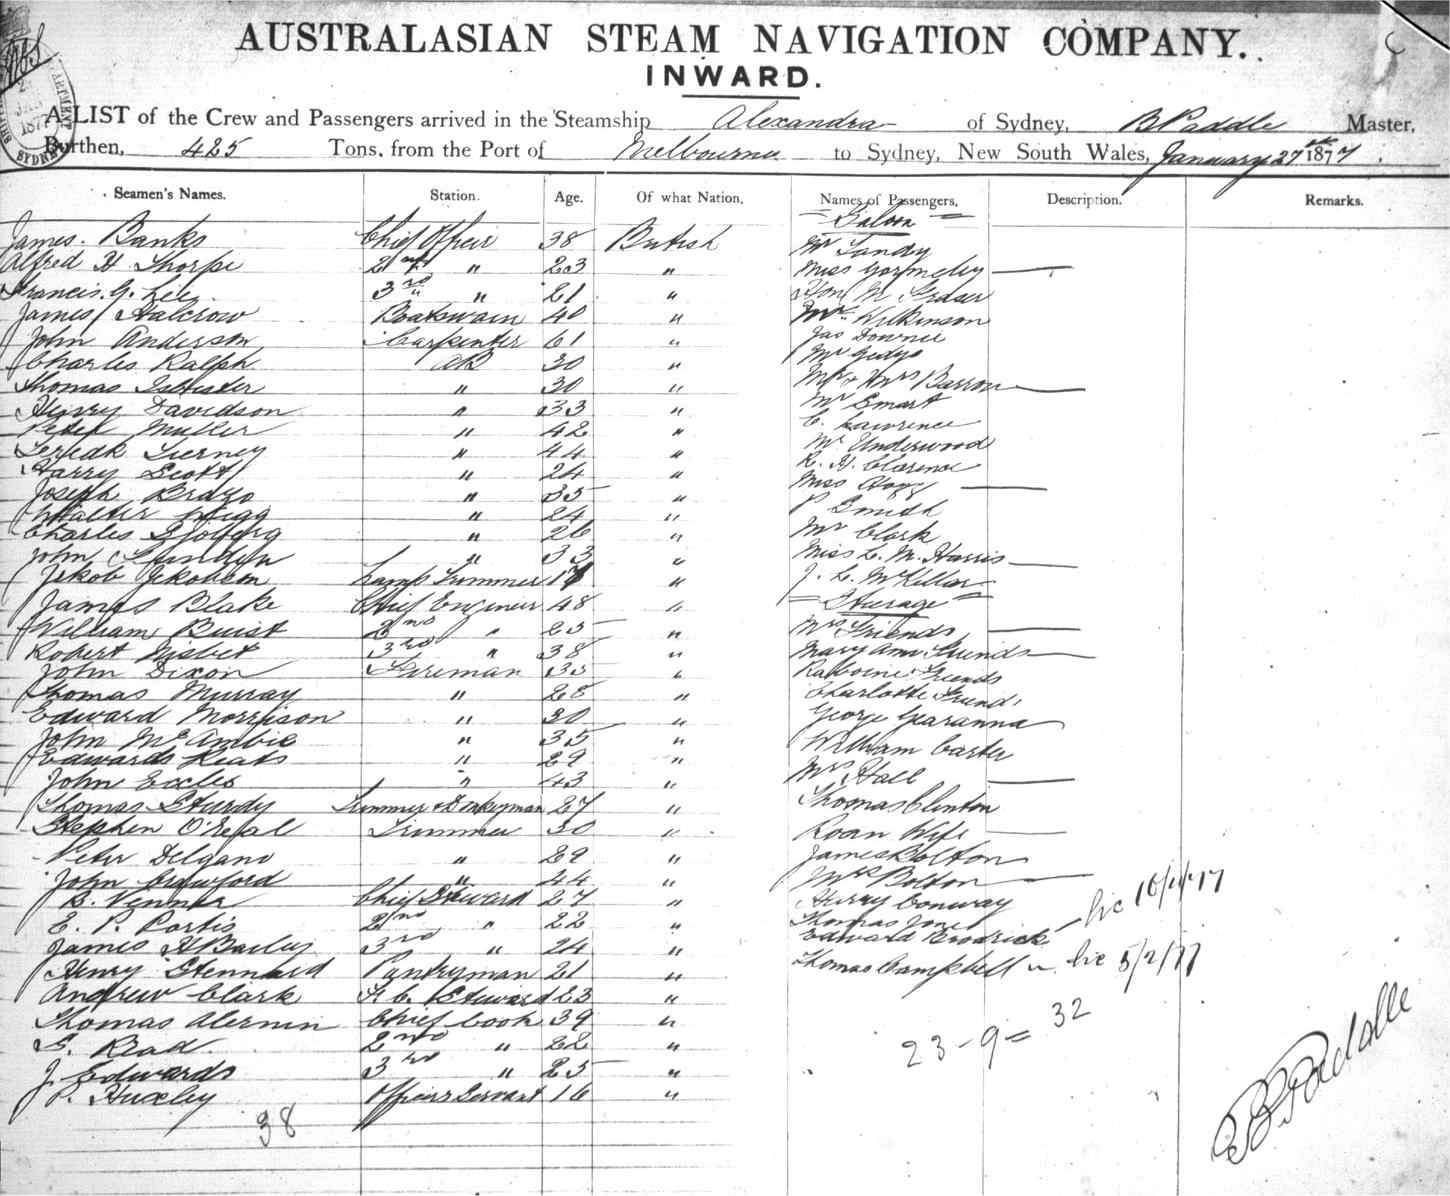 AUSTRALASIAN STEAM NAVIGATION COMPANY.
INWARD.
A LIST of the Crew and Passengers arrived in the Steamship Alexandra of Sydney, B Paddle Master,
Burthen, 425 Tons, from the Port of Melbourne to Sydney, New South Wales, January 27th 1877.
Seamen's Names. Station. Age. Of what Nation. Names of Passengers, Description. Remarks.
James Banks Chief Officer 38 British
Alfred H Thorpe 2nd " 23 "
Francis G. 3rd " 21 "
James Halcrow Boatswain 40 "
John Anderson Carpenter 61 "
Charles Ralph AB 30 "
Thomas Isbister " 30 "
Henry Davidson " 33 "
Peter Muller " 42 "
Fredk Tierney " 44 "
Harry Scott " 24 "
Joseph " 35 "
Walter " 24 "
Charles " 26 "
John " 33 "
Jakob Lamp Trimmer 17 "
James Blake Chief Engineer 48 "
William Buist 2nd " 25 "
Robert Nisbet 3rd " 38 "
John Dixon Fireman 35 "
Thomas Murray " 28 "
Edward Morrison " 30 "
John McAmbie " 35 "
Edwards Keats " 29 "
John Eccles " 43 "
Thomas Sturdy Trimmer & Donkeyman 27 "
Stephen Trimmer 30 "
Peter Delgano " 29 "
John Crawford " 44 "
B. Venner Chief Steward 27 "
E. P. Portis 2nd " 22 "
James H Bailey 3rd " 24 "
Henry Stennard Pantryman 21 "
Andrew Clark F.C. Steward 23 "
Thomas Chief Cook 39 "
Read. 2nd " 22 "
J. Edwards 3rd " 25 "
P. Huxley Officers Servant 16 "
38
Saloon
Mr Landy
Miss Gormeley
Hon M Fraser
Mr Wilkinson
Jas Downie
Mr Gedye
Mr & Mrs Barron
Mr Smart
C. Lawrence
Mr Underwood
R. H. Clarence
Miss Hogg
P Smith
Mr Clark
Miss L. M. Harris
J. L. McKillar
Steerage
Mrs Friends
Mary Ann Friends
Friends
Charlotte Friends
George
William Carter
Mrs Hall
Thomas Clinton
Roan Wife
James Bolton
Mrs Bolton
Harry Conway
Thomas Jones
Edward Brodrick
Thomas Campbell 5/2/77
23 - 9 = 32
B Paddle